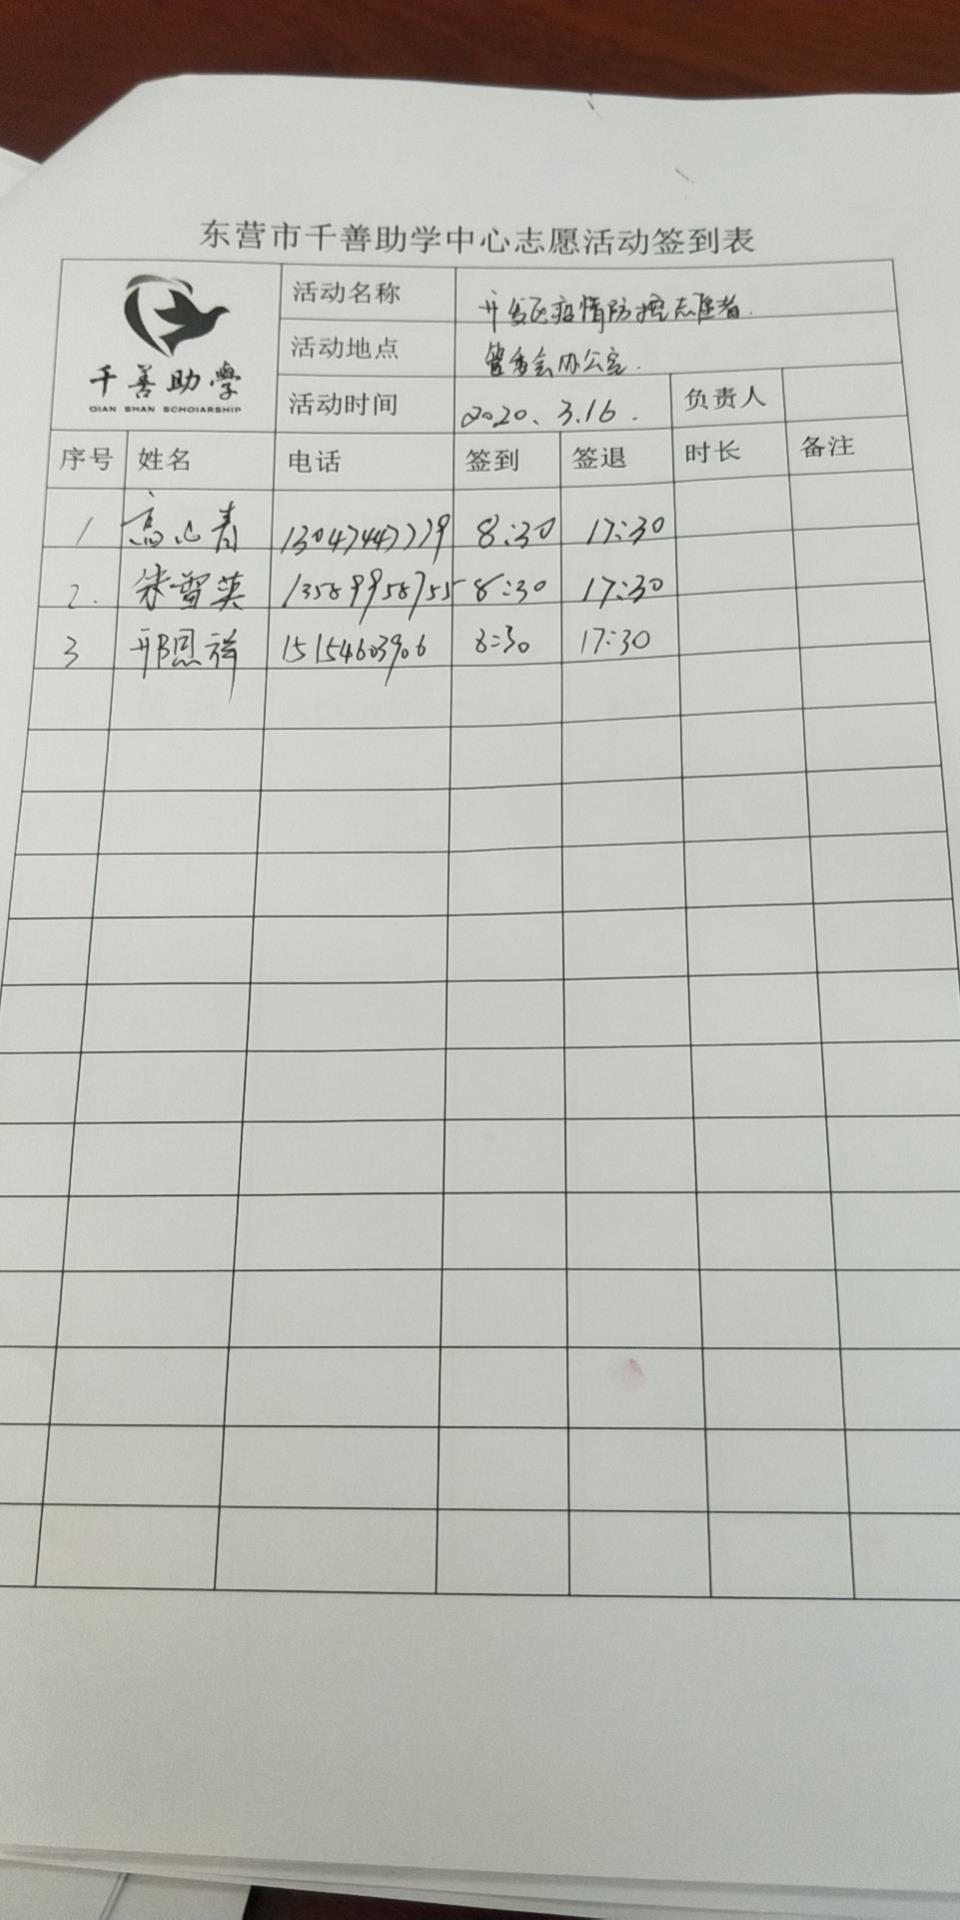 东营市千善助学中心志愿活动签到表
千善助學
QIAN SHAN SCHOIARSHIP
活动名称 开发区疫情防控志愿者.
活动地点 管委会办公室.
活动时间 2020.3.16. 负责人
序号 姓名 电话 签到 签退 时长 备注
1 高心青 13047447779 8:30 17:30
2. 朱雪英 13589958755 8:30 17:30
3 邢恩祥 15154603906 8:30 17:30